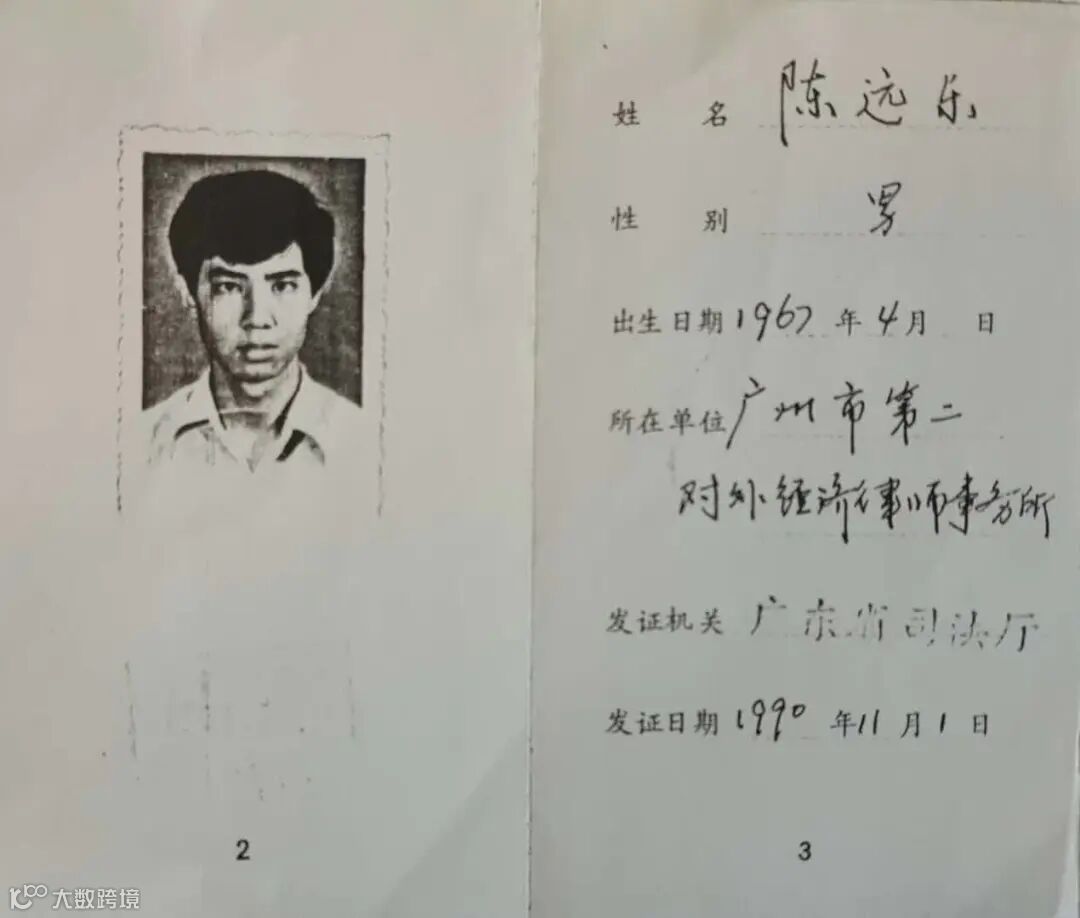 姓 名 陈远乐
性 别 男
出生日期 1967 年 4 月 日
所在单位 广州市第二
对外经济律师事务所
发证机关 广东省司法厅
发证日期 1990 年 11 月 1 日
2
3
大数跨境